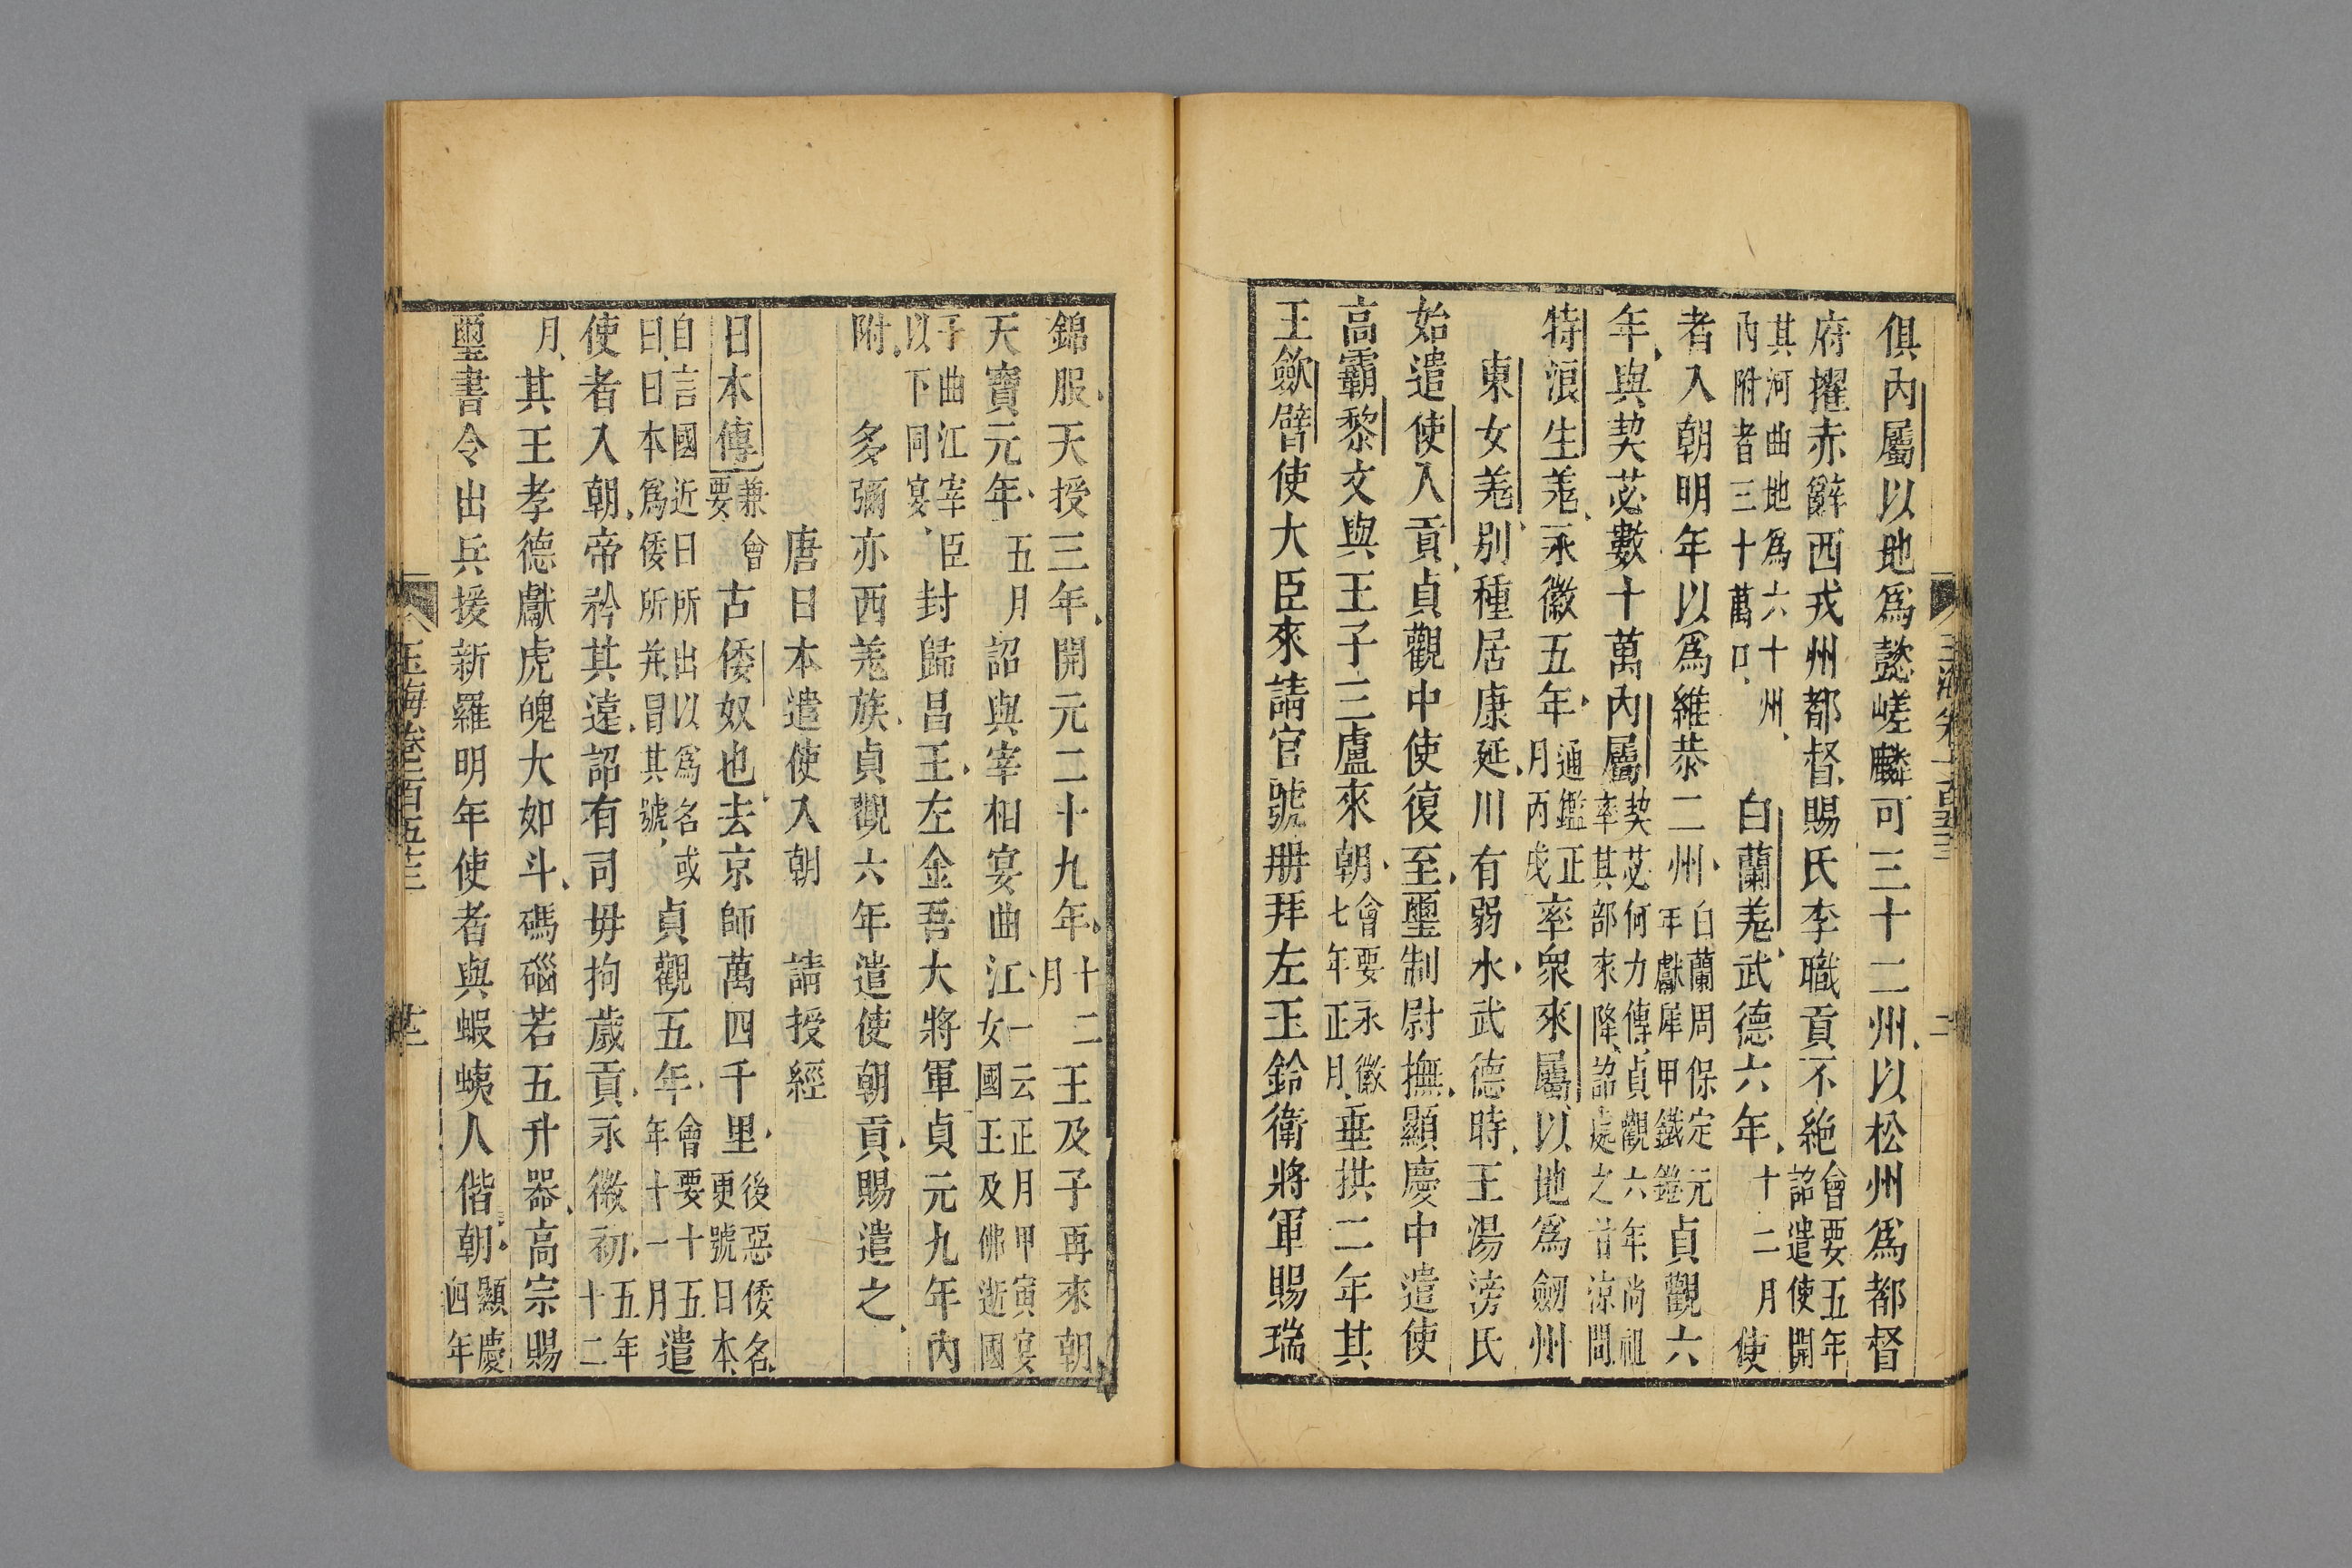 俱內屬以地爲懿嵯麟可三十二州以松州爲都督
府擢赤辭西戎州都督賜氏李職貢不絶會要五年詔遣使開
其河曲地爲六十州內附者三十萬口白蘭羌武德六年十二月使
者入朝明年以爲維恭二州白蘭周保定元年獻犀甲鐵鎧貞觀六
年與契苾數十萬內屬契苾何力傳貞觀六年尚祖率其部來降詔處之甘涼間
特浪生羌永徽五年通鑑正月丙戌率衆來屬以地爲劒州
東女羌別種居康延川有弱水武德時王湯滂氏
始遣使入貢貞觀中使復至璽制尉撫顯慶中遣使
高霸黎文與王子三盧來朝會要永徽七年正月垂拱二年其
王歛臂使大臣來請官號册拜左玉鈐衛將軍賜瑞
錦服天授三年開元二十九年十二月王及子再來朝
天寶元年五月詔與宰相宴曲江一云正月甲寅宴女國王及佛逝國
子曲江宰臣以下同宴封歸昌王左金吾大將軍貞元九年內
附多彌亦西羌族貞觀六年遣使朝貢賜遣之
唐日本遣使入朝請授經
日本傳兼會要古倭奴也去京師萬四千里後惡倭名更號日本
自言國近日所出以爲名或曰日本爲倭所并冒其號貞觀五年會要十五年十一月遣
使者入朝帝矜其遠詔有司毋拘歲貢永徽初五年十二
月其王孝德獻虎魄大如斗碼碯若五升器高宗賜
璽書令出兵援新羅明年使者與蝦蛦人偕朝顯慶四年
玉海卷百五三